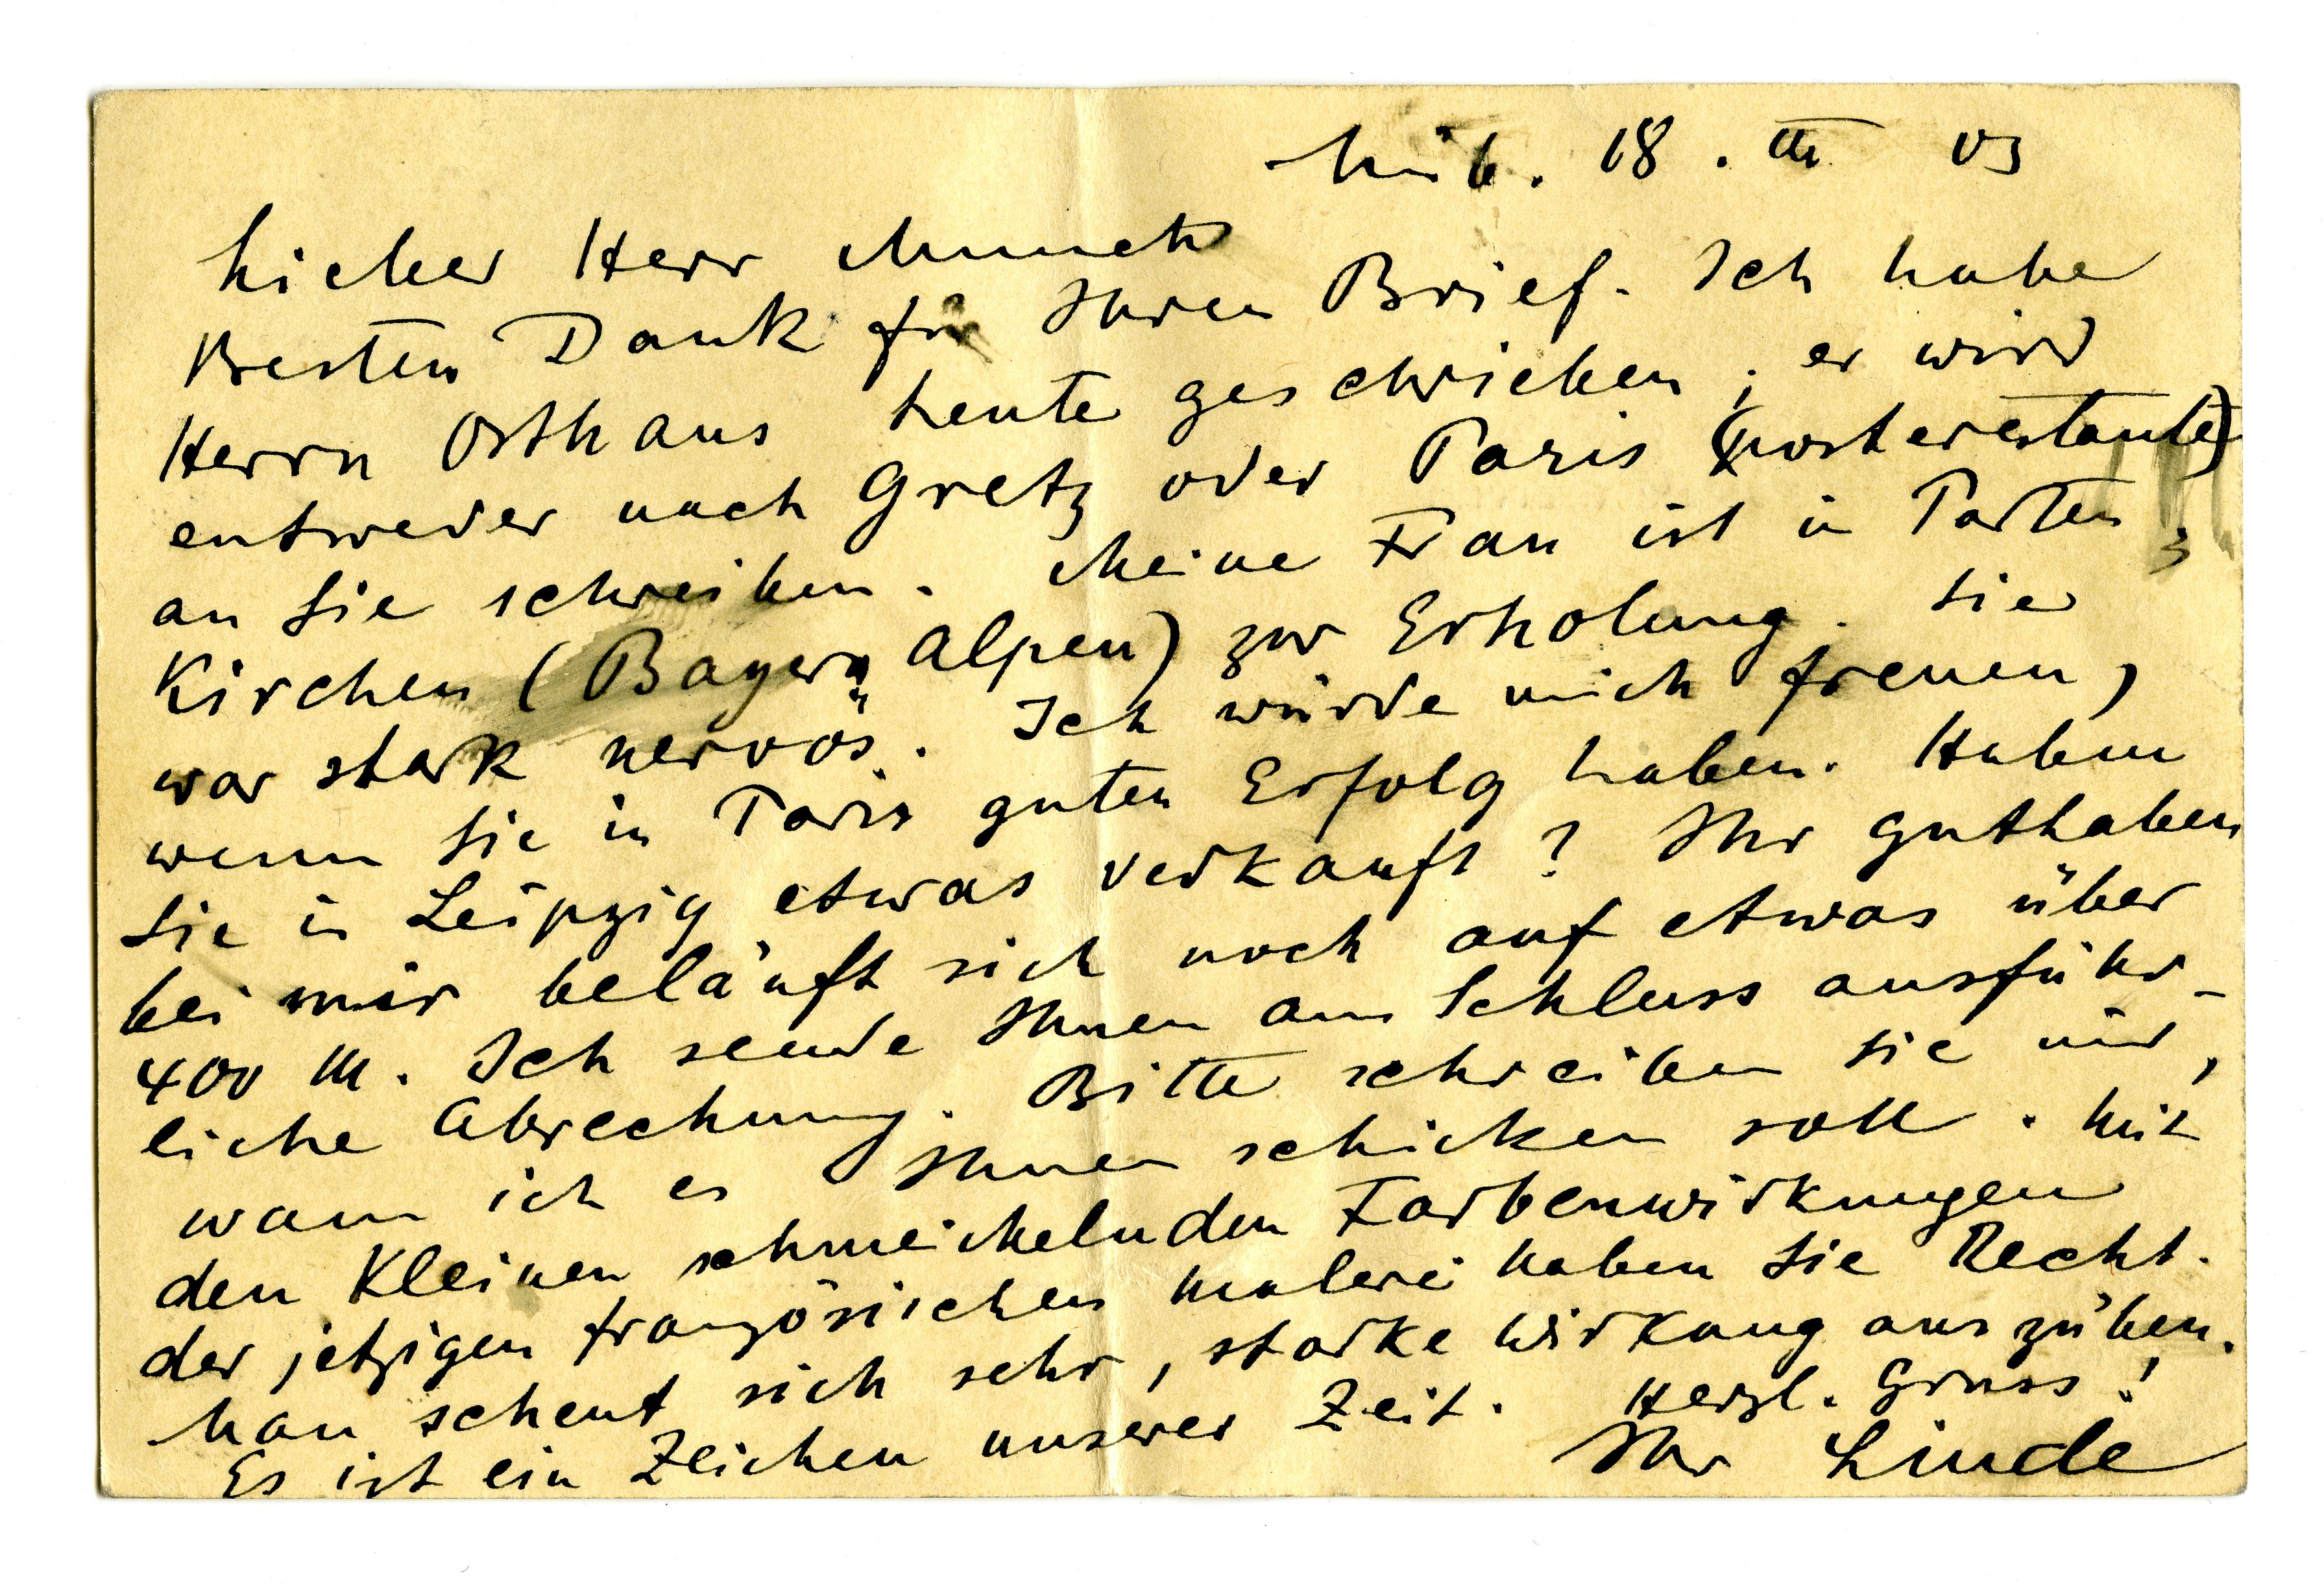 Lüb. 18. III 03
Lieber Herr Munch
Besten Dank für Ihren Brief. Ich habe
Herrn Osthaus heute geschrieben; er wird
entweder nach Gretz oder Paris (posterestante)
an Sie schreiben. Meine Frau ist in Parten
Kirchen (Bayern Alpen) zur Erholung. Sie
war stark nervös. Ich würde mich freuen,
wenn Sie in Paris guten Erfolg haben. Haben
Sie in Leipzig etwas verkauft? Ihr Guthaben
bei mir beläuft sich noch auf etwas über
400 M. Ich sende Ihnen am Schluss ausführ-
liche Abrechnung. Bitte schreiben Sie mir,
wann ich es Ihnen schicken soll. Mit
den Kleinen schmeichelnden Farbenwirkungen
der jetzigen französischen Malerei haben Sie Recht.
Man scheut sich sehr, starke Wirkung auszüben.
Es ist ein Zeichen unserer Zeit. Herzl. Gruss!
Ihr Linde